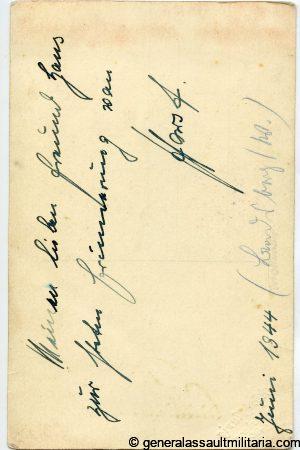 Meinen lieben Freund Hans
zur Erinnerung von
Horst.
Juni 1944 (Landsberg (W.)
© generalassaultmilitaria.com